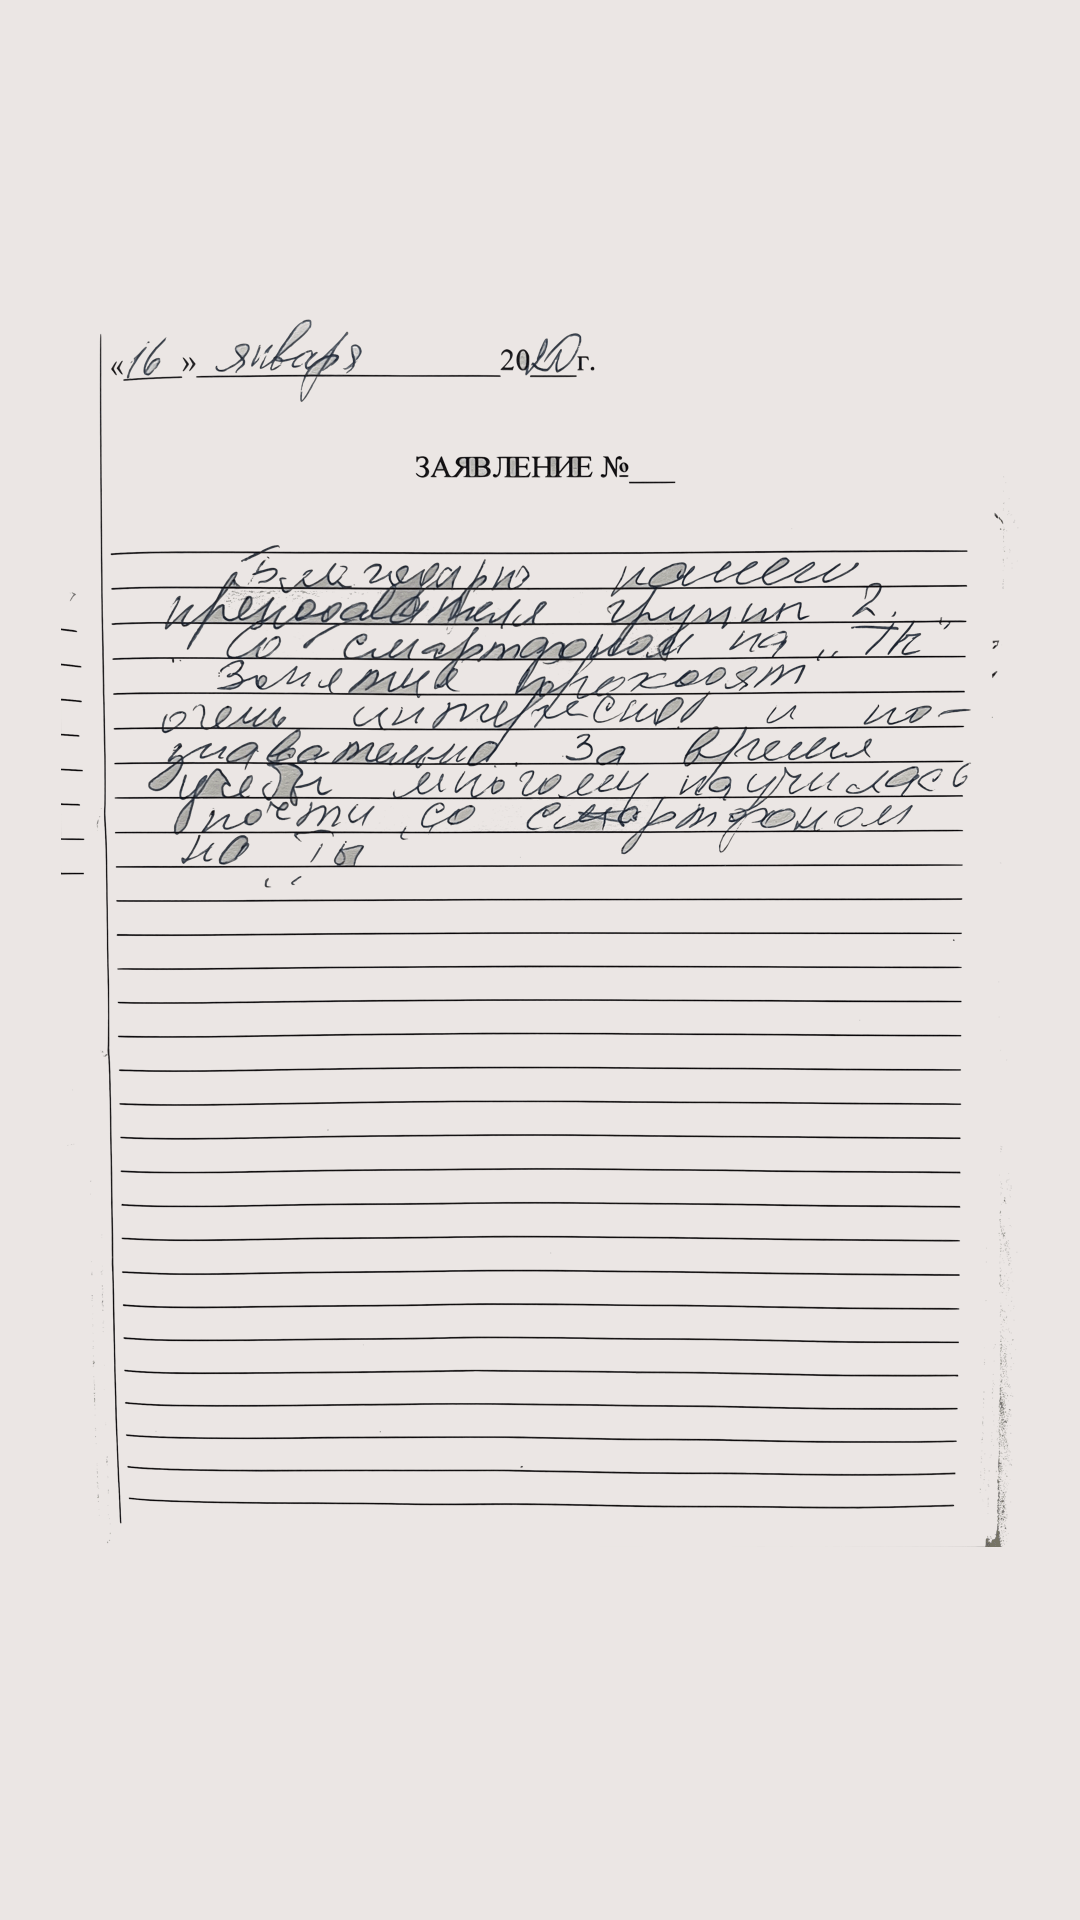 «16» января 2020г.
ЗАЯВЛЕНИЕ №___
Благодарю нашего
преподавателя группы 2.
"Со смартфоном на „Ты"
Занятия проходят
очень интересно и по-
знавательно. За время
учебы многому научилась
почти „со смартфоном
на Ты"